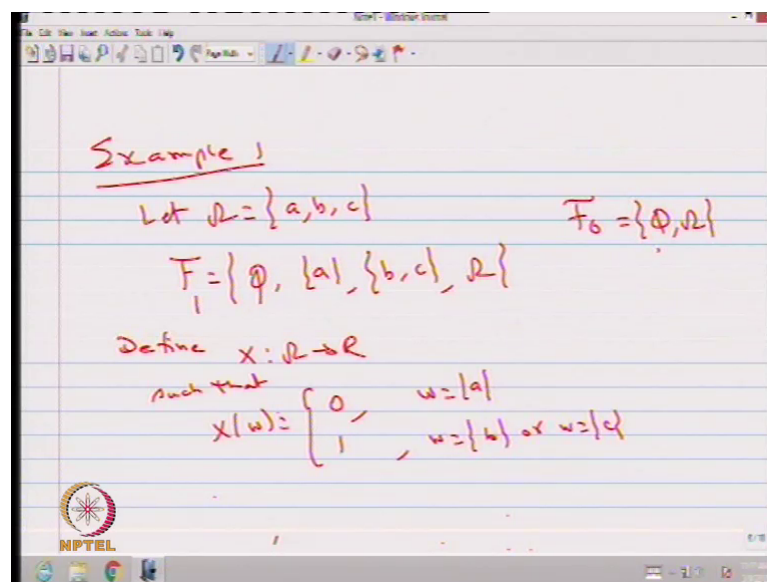 Note1 - Windows Journal
File Edit View Insert Actions Tools Help
Page Width
Example 1
Let Ω = {a, b, c}
F₀ = {Φ, Ω}
F₁ = {Φ, {a}, {b, c}, Ω}
Define X : Ω → R
such that
X(w) = { 0, w = {a}
1, w = {b} or w = {c}
NPTEL